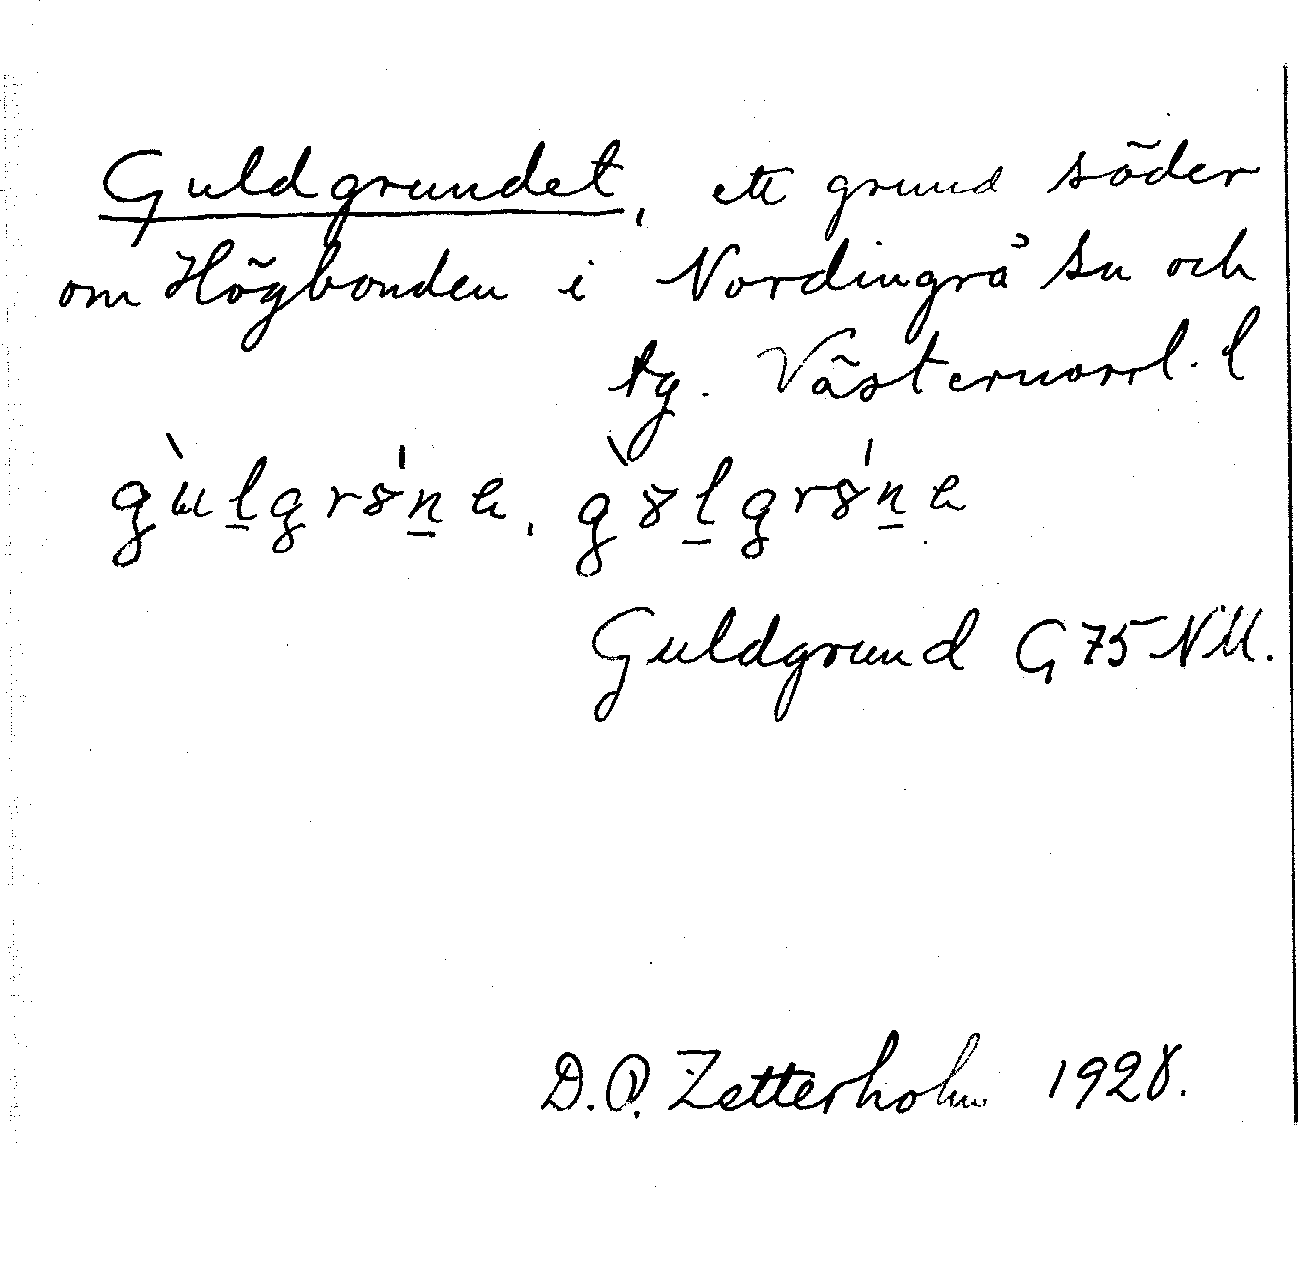 Guldgrundet, ett grund söder
om Högbonden i Nordingrå sn och
tg. Västernorrl. l
Guldgrund G 75 NM.
D.O. Zetterholm 1928.